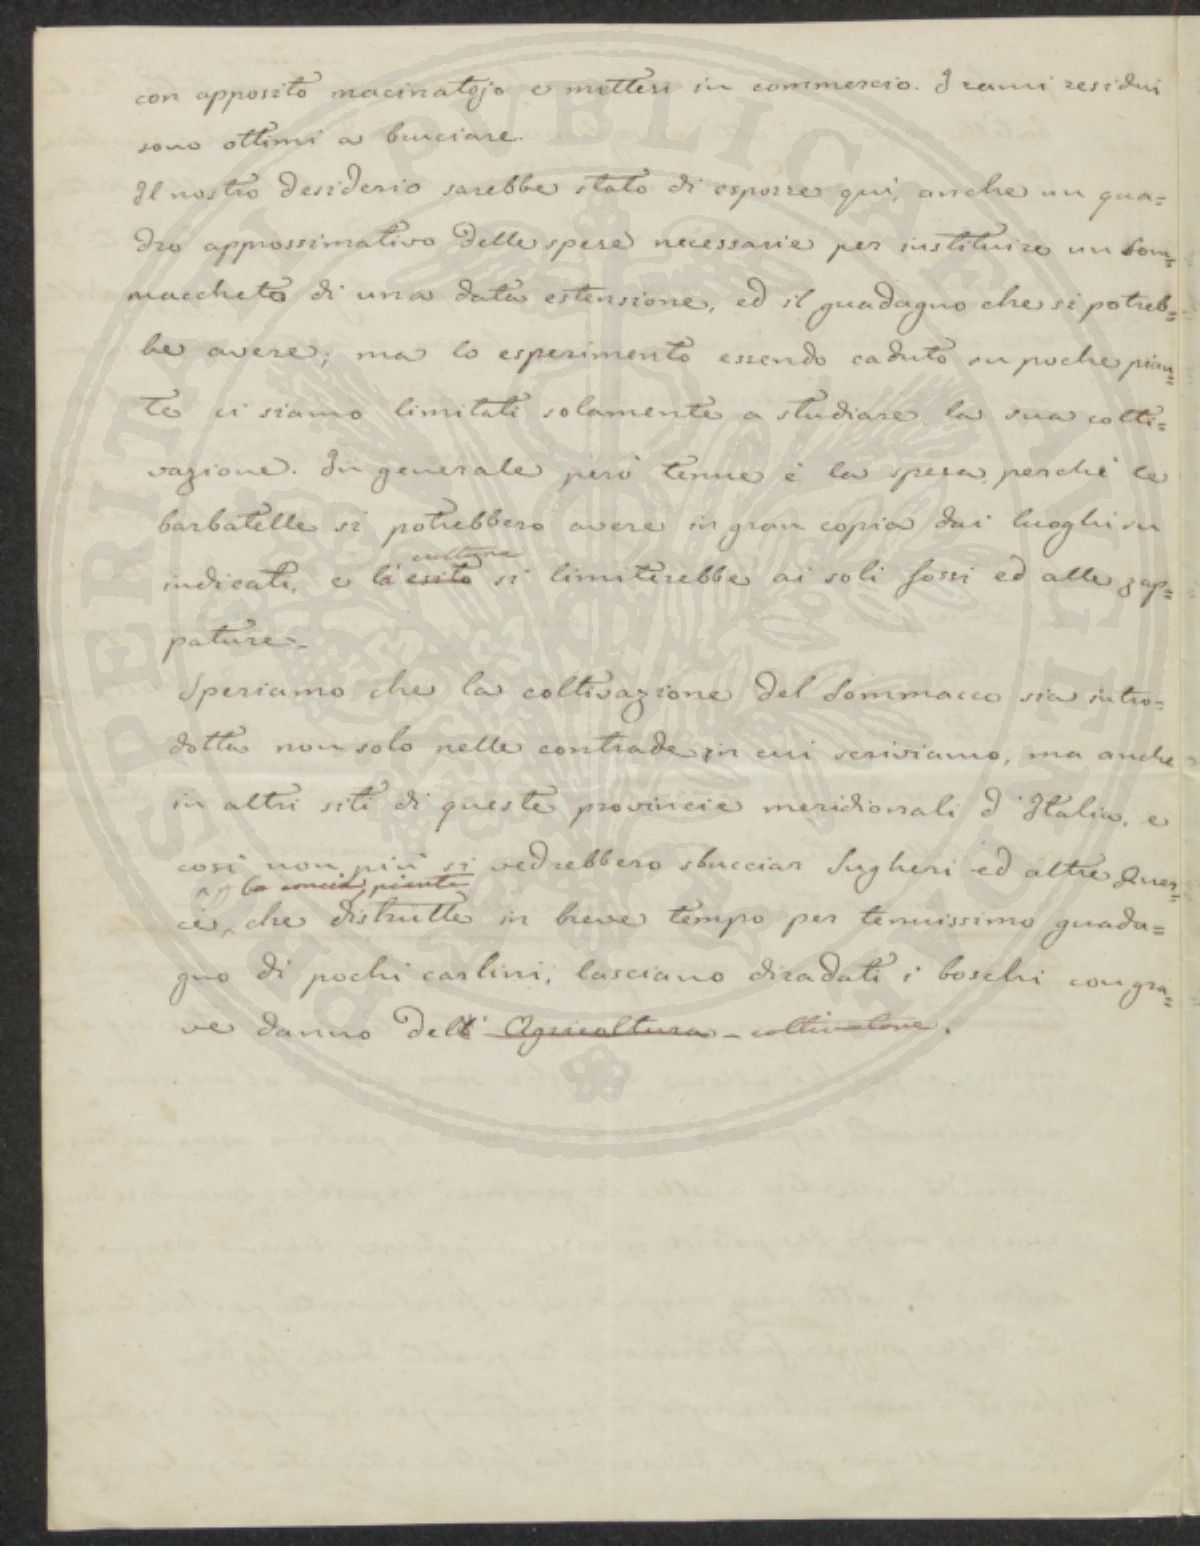 con apposito macinatojo e mettersi in commercio. I rami residui
sono ottimi a bruciare.
Il nostro desiderio sarebbe stato di esporre qui, anche un qua=
dro approssimativo delle spese necessarie per instituire un Som=
maccheto di una data estensione, ed il guadagno che si potreb=
be avere; ma lo esperimento essendo caduto su poche pian=
te ci siamo limitati solamente a studiare la sua colti=
vazione. In generale però tenue è la spesa, perché le
barbatelle si potrebbero avere in gran copia dai luoghi su
coltura
indicati, e l'esito si limiterebbe ai soli fossi ed alle zap=
pature.
Speriamo che la coltivazione del Sommacco sia intro=
dotta non solo nelle contrade in cui scriviamo, ma anche
in altri siti di queste provincie meridionali d'Italia, e
così non più si vedrebbero sbucciar Sugheri ed altre Quer=
la concia, piante
ce, che distrutte in breve tempo per tenuissimo guada=
gno di pochi carlini, lasciano diradati i boschi con gra=
ve danno dell'Agricoltura - coltivatore.
PUBLICAE
PROSPERITATI